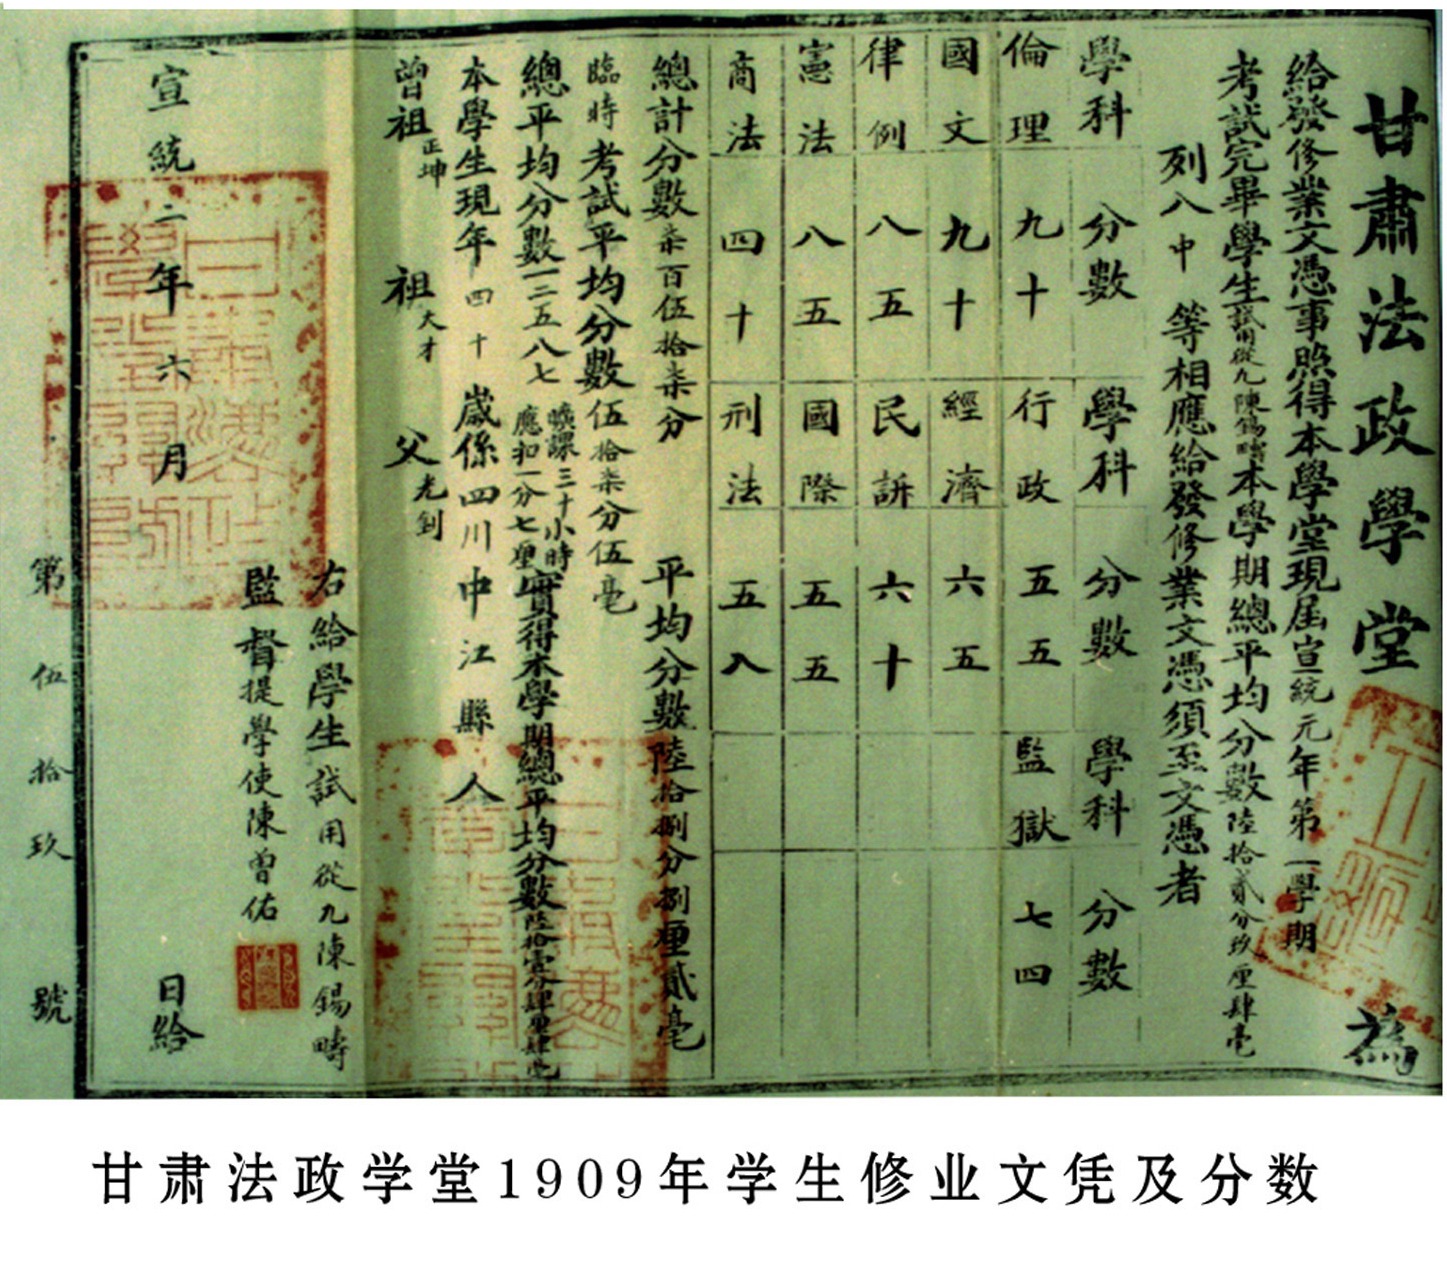 甘肅法政學堂 為
給發修業文憑事照得本學堂現屆宣統元年第一學期
考試完畢學生試用從九陳錫疇本學期總平均分數陸拾貳分玖厘肆毫
列八中 等相應給發修業文憑須至文憑者
學科 分數 學科 分數 學科 分數
倫理 九十 行政 五五 監獄 七四
國文 九十 經濟 六五
律例 八五 民訴 六十
憲法 八五 國際 五五
商法 四十 刑法 五八
總計分數柒百伍拾柒分 平均分數陸拾捌分捌厘貳毫
臨時考試平均分數伍拾柒分伍毫
總平均分數一二五八七 曠課三十小時應扣一分七厘 實得本學期總平均分數陸拾壹分肆厘肆毫
本學生現年四十歲係四川中江縣人
曾祖正坤 祖大才 父光釗
右給學生試用從九陳錫疇
監督提學使陳曾佑
宣統二年六月 日給
第伍拾玖號
甘肃法政学堂1909年学生修业文凭及分数